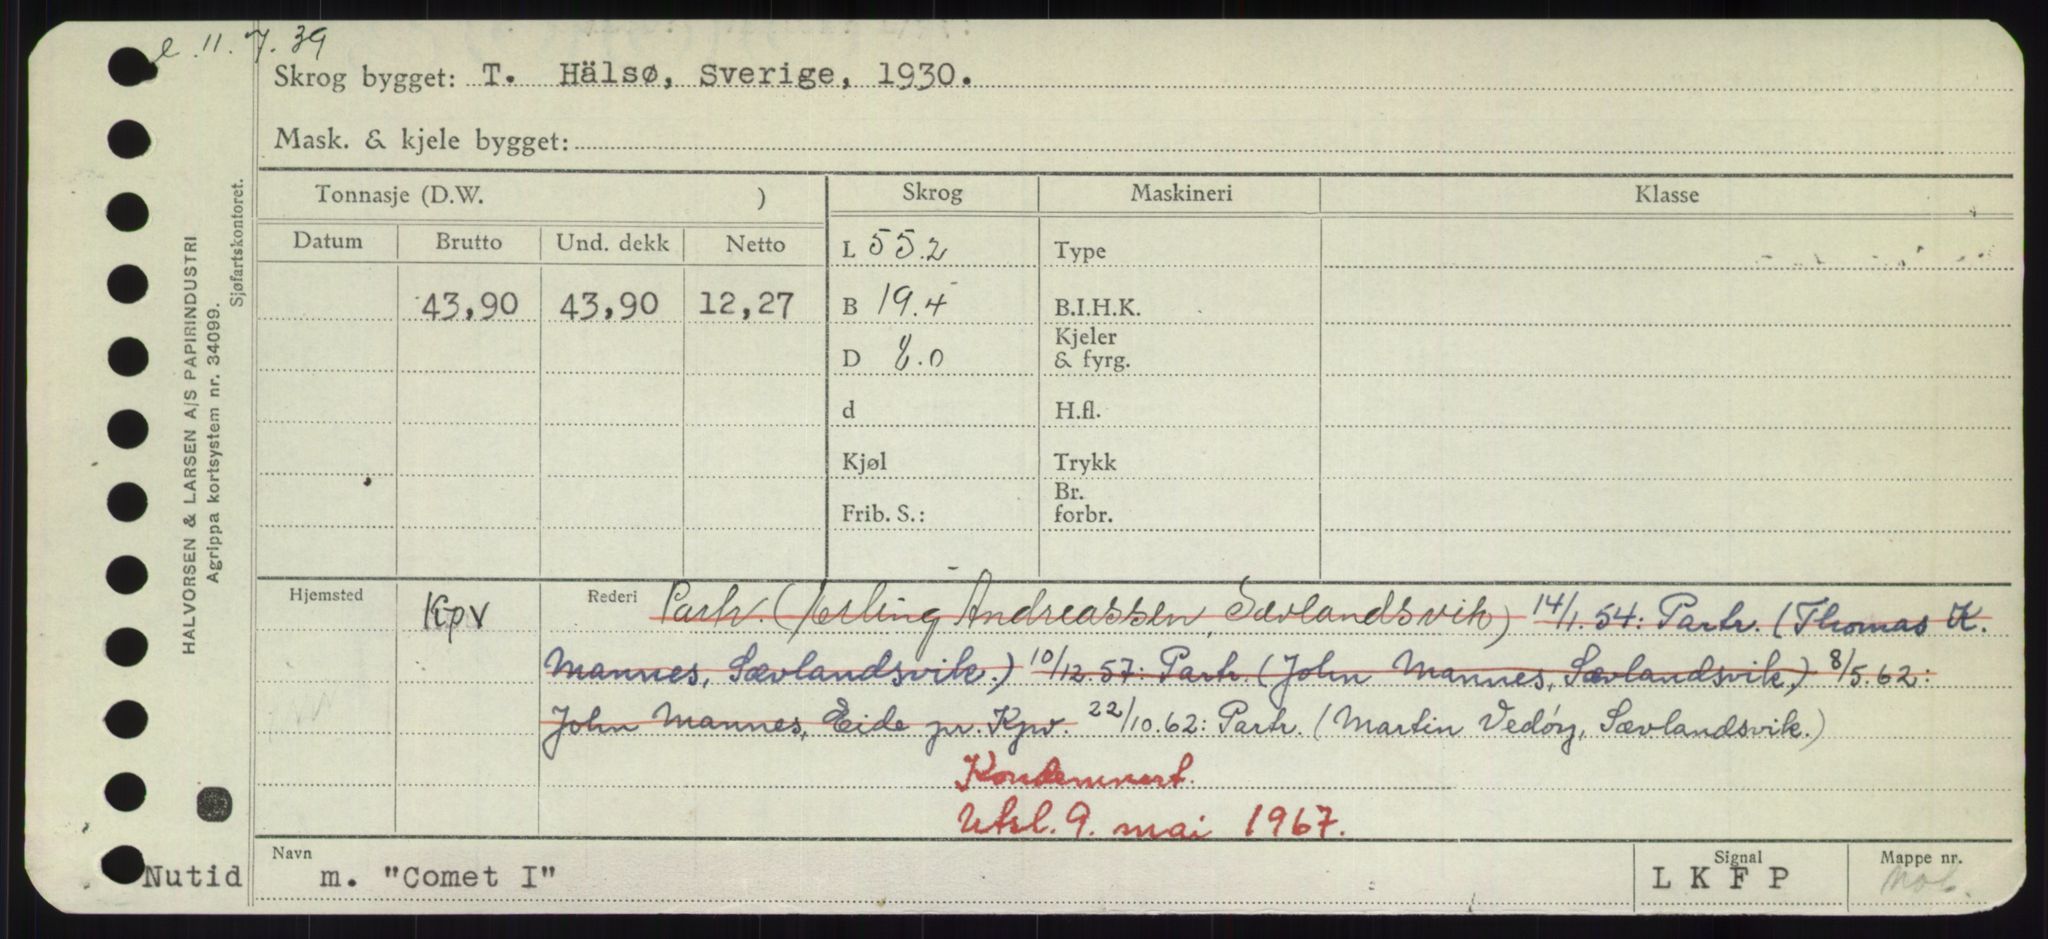 e. 11. 7. 39
Skrog bygget: T. Hälsø, Sverige, 1930.
Mask. & kjele bygget:
HALVORSEN & LARSEN A/S PAPIRINDUSTRI
Agrippa kortsystem nr. 34099.
Sjøfartskontoret.
Tonnasje (D.W. ) Skrog Maskineri Klasse
Datum Brutto Und. dekk Netto L 55.2 Type
43,90 43,90 12,27 B 19.4 B.I.H.K.
D 8.0 Kjeler & fyrg.
d H.fl.
Kjøl Trykk
Frib. S.: Br. forbr.
Hjemsted Kpv Rederi Partr. (Erling Andreassen, Sævlandsvik) 14/1.54: Partr. (Thomas K.
Mannes, Sævlandsvik.) 10/12.57: Partr. (John Mannes, Sævlandsvik.) 8/5.62:
John Mannes, Eide pr. Kpv. 22/10.62: Partr. (Martin Vedøy, Sævlandsvik.)
Kondemnert.
Utsl. 9. mai 1967.
Nutid Navn m. "Comet I" Signal L K F P Mappe nr.